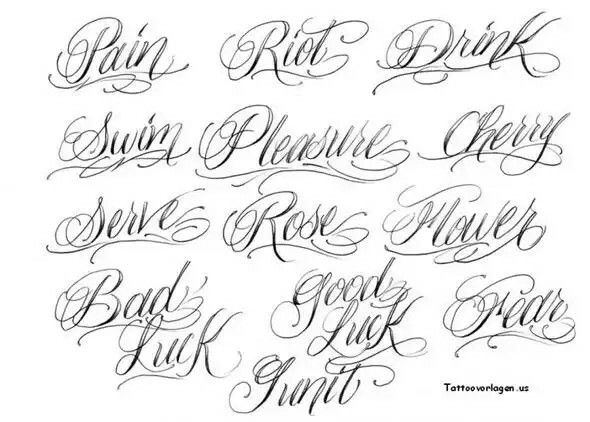 Pain Riot Drink
Swim Pleasure Cherry
Serve Rose Flower
Bad Luck
Good Luck
Fear
Gunit
Tattoovorlagen.us